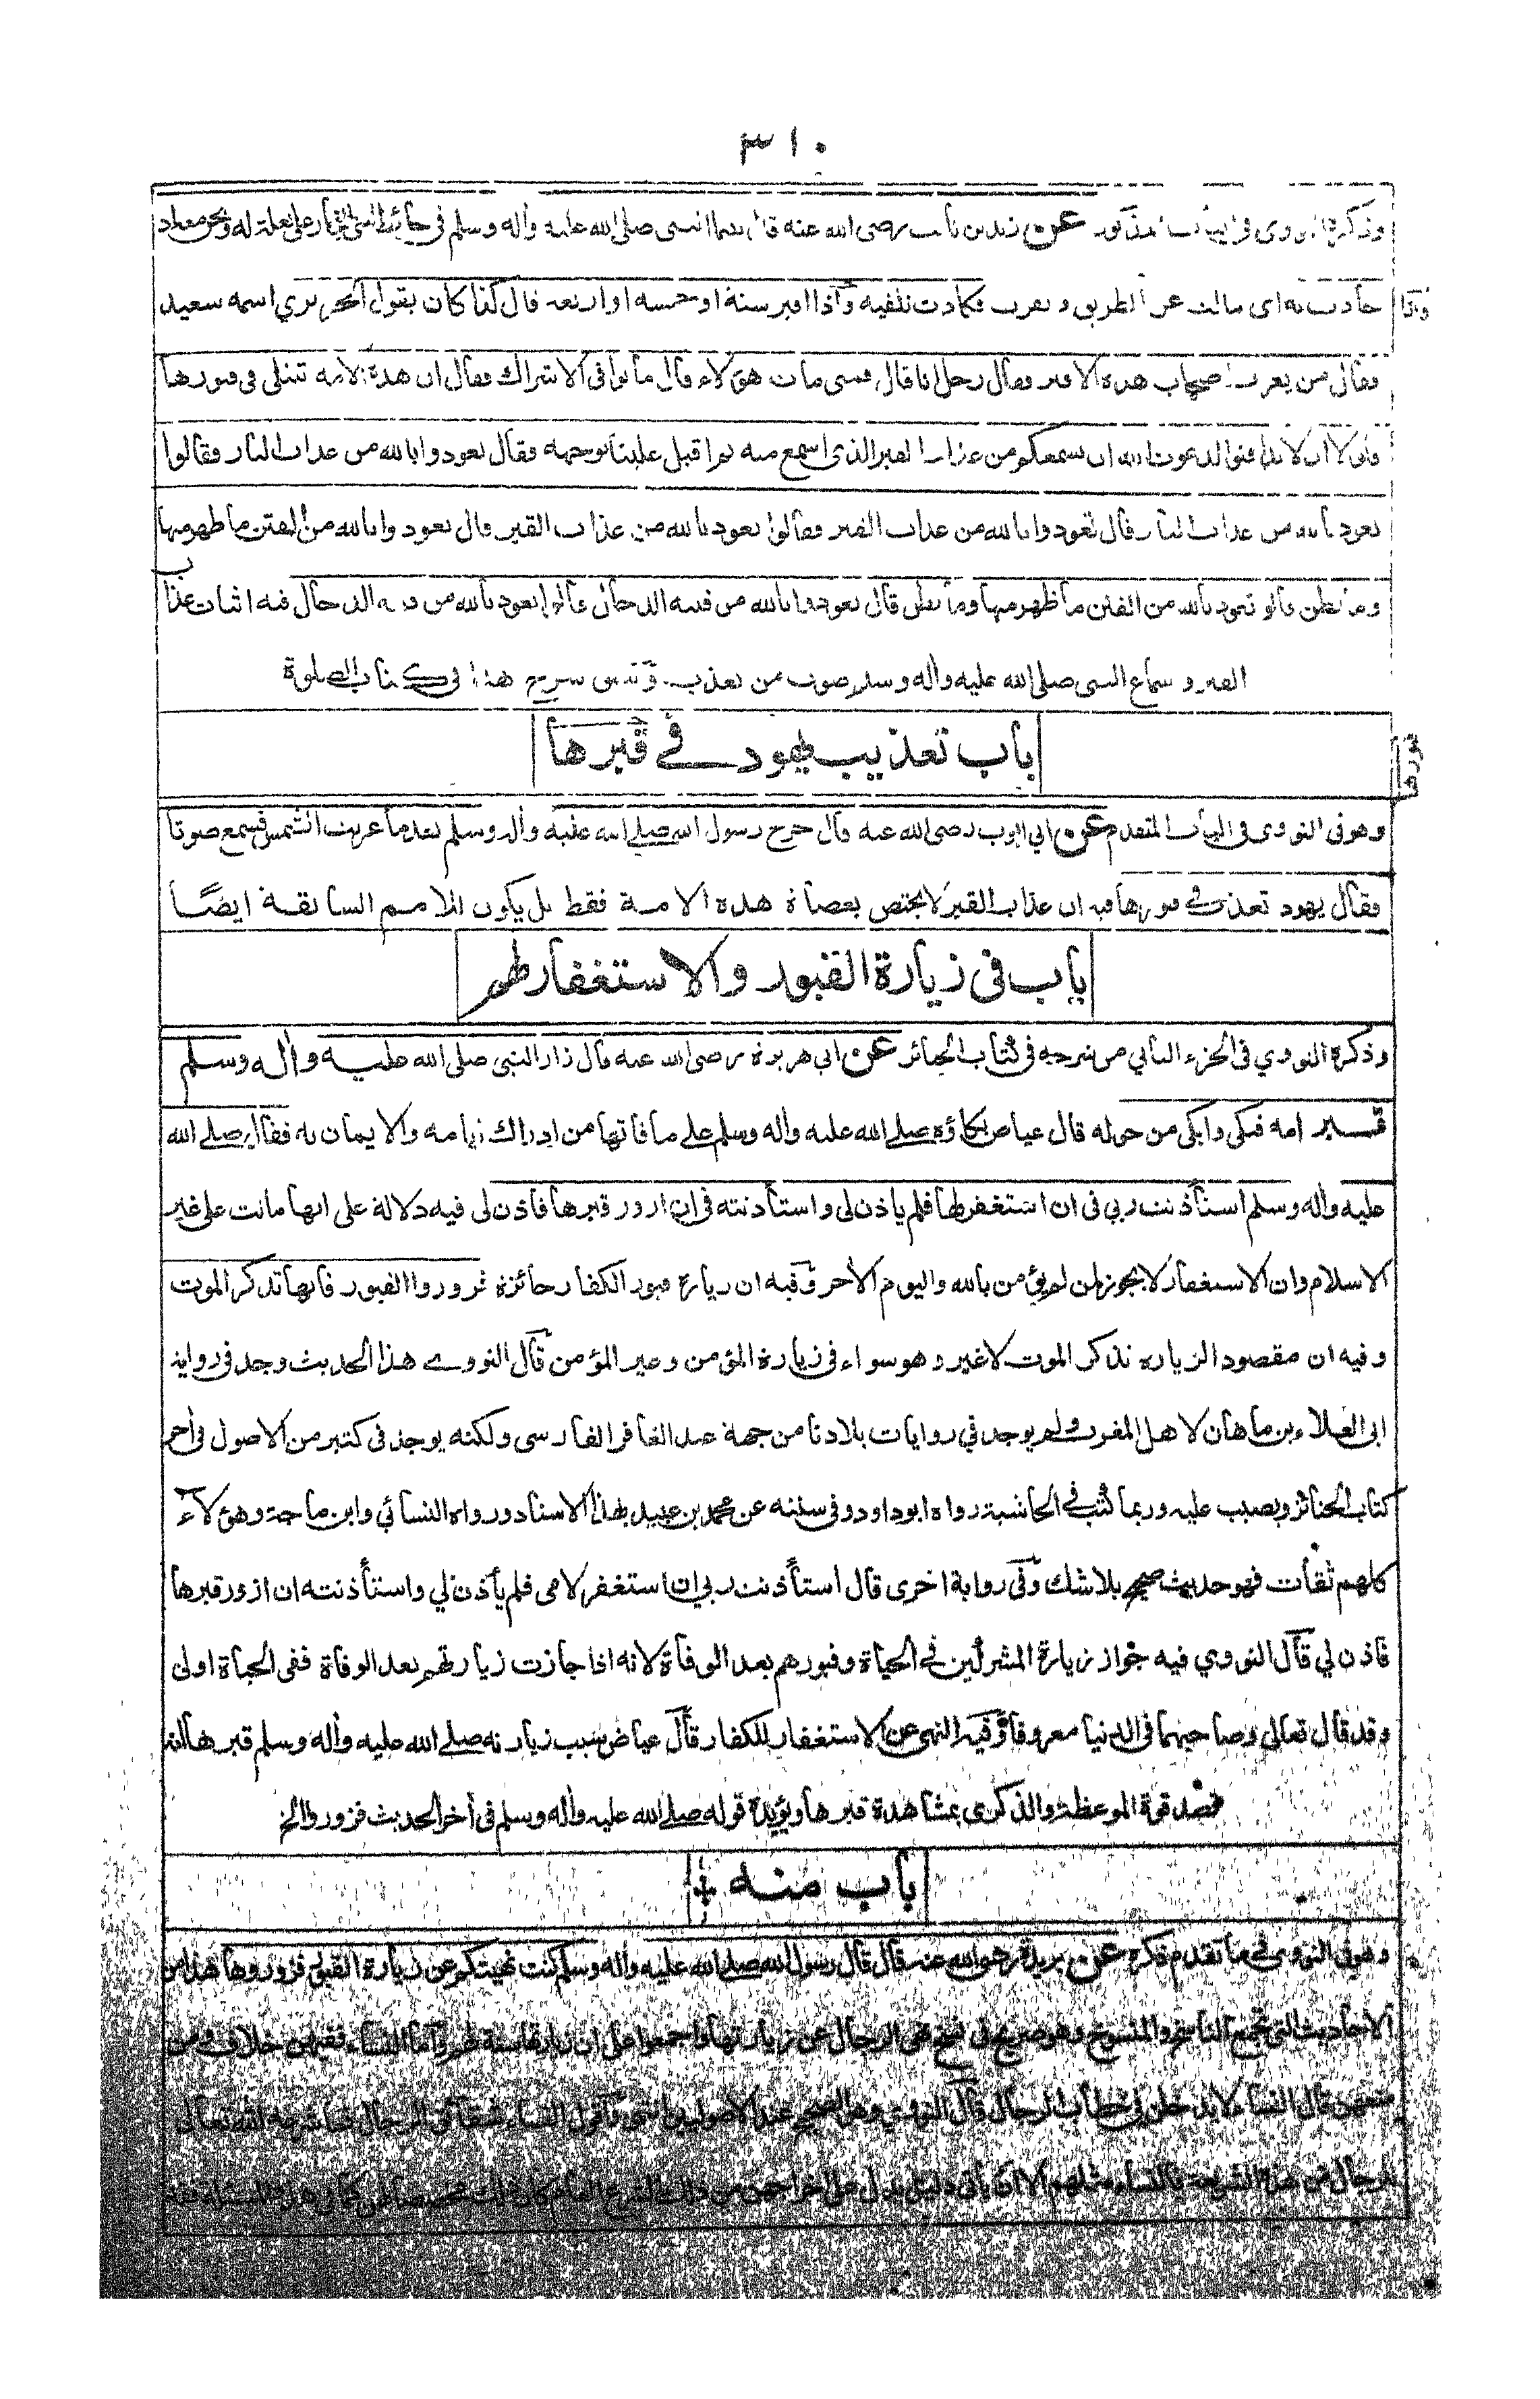 ٣١٠
وذكره النووى فى الباب المذكور عن زيد بن ثابت رضى الله عنه قال بينما النبى صلى الله عليه واله وسلم فى حائط لبنى النجار على بغلة له ونحن معه اذ
حادت به اى مالت عن الطريق و نفرت فكادت تلقيه وَاذا اقبر ستة او خمسة او اربعة قال كذا كان يقول الجريري اسمه سعيد
واذا
فقال من يعرف اصحاب هذه الاقبر فقال رجل انا قال فمتى مات هؤلاء قال ماتوا فى الاشراك فقال ان هذه الامة تبتلى فى قبورها
فلولا ان لا تدافنوا لدعوت الله ان يسمعكم من عذاب القبر الذى اسمع منه ثم اقبل علينا بوجهه فقال تعوذوا بالله من عذاب النار فقالوا
نعوذ بالله من عذاب النار قال تعوذوا بالله من عذاب القبر فقالوا نعوذ بالله من عذاب القبر قال تعوذوا بالله من الفتن ما ظهر منها
وما بطن قالوا نعوذ بالله من الفتن ما ظهر منها وما بطن قال تعوذوا بالله من فتنة الدجال قالوا نعوذ بالله من فتنة الدجال فيه اثبات عذاب
القبر و سماع النبى صلى الله عليه واله وسلم صوت من يعذب وقد سبق شرح هذا فى كتاب الصلوة
باب تعذيب يهود في قبرها
قبورها
وهو فى النووى فى الباب المتقدم عن ابي ايوب رضى الله عنه قال خرج رسول الله صلے الله عليه واله وسلم بعد ما غربت الشمس فسمع صوتا
فقال يهود تعذب في قبورها فيه ان عذاب القبر لا يختص بعصاة هذه الامة فقط بل يكون للامم السابقة ايضًا
باب فى زيارة القبور والاستغفار لهم
وذكره النووي فى الجزء الثاني من شرحه فى كتاب الجنائز عن ابي هريرة رضى الله عنه قال زار النبى صلى الله عليه واله وسلم
قبر امه فبكى وابكى من حوله قال عياض بكاؤه صلے الله عليه واله وسلم على ما فاتها من ادراك ايامه والايمان به فقال صلے الله
عليه واله وسلم استأذنت ربي فى ان استغفر لها فلم ياذن لى واستأذنته فى ان ازور قبرها فاذن لى فيه دلالة على انها ماتت على غير
الاسلام وان الاستغفار لا يجوز لمن لم يؤمن بالله واليوم الأخر وفيه ان زيارة قبور الكفار جائزة فزوروا القبور فانها تذكر الموت
وفيه ان مقصود الزيارة تذكر الموت لا غير وهو سواء فى زيارة المؤمن وغير المؤمن قال النووے هذا الحديث وجد فى رواية
ابى العلاء بن ماهان لاهل المغرب ولم يوجد في روايات بلادنا من جهة عبد الغافر الفارسى ولكنه يوجد فى كثير من الاصول فى أخر
كتاب الجنائز ويضبب عليه وربما كتب في الحاشية رواه ابو داود فى سننه عن محمد بن عبيد بهذا الاسناد ورواه النسائي وابن ماجة وهؤلاء
كلهم ثقات فهو حديث صحيح بلاشك وفى رواية اخرى قال استأذنت ربي ان استغفر لامى فلم يأذن لي واستأذنته ان ازور قبرها
فاذن لي قال النووي فيه جواز زيارة المشركين في الحياة وقبورهم بعد الوفاة لانه اذا جازت زيارتهم بعد الوفاة ففى الحياة اولى
وقد قال تعالى وصاحبهما فى الدنيا معروفا وفيه النهى عن الاستغفار للكفار قال عياض سبب زيارته صلے الله عليه واله وسلم قبرها انه
قصد قوة الموعظة والذكرى بمشاهدة قبرها ويؤيده قوله صلے الله عليه واله وسلم فى أخر الحديث فزوروا الخ
باب منه
وهو فى النووى في ما تقدم ذكره عن بريدة رضى الله عنه قال قال رسول الله صلے الله عليه واله وسلم كنت نهيتكم عن زيارة القبور فزوروها هذا من
الاحاديث التى تجمع الناسخ والمنسوخ وهو صريح فى نسخ نهى الرجال عن زيارتها واجمعوا على ان زيارتها سنة لهم واما النساء ففيهن خلاف فمن
منعهن قال النساء لا يدخلن في خطاب الرجال قال النووي وهو الصحيح عند الاصوليين انتهى واقول النساء شقائق الرجال فما شرعه الله تعالى
للرجال من هذه الشريعة فالنساء مثلهم الا ان ياتى دليل يدل على اخراجهن من ذلك الشرع العام كان ذلك